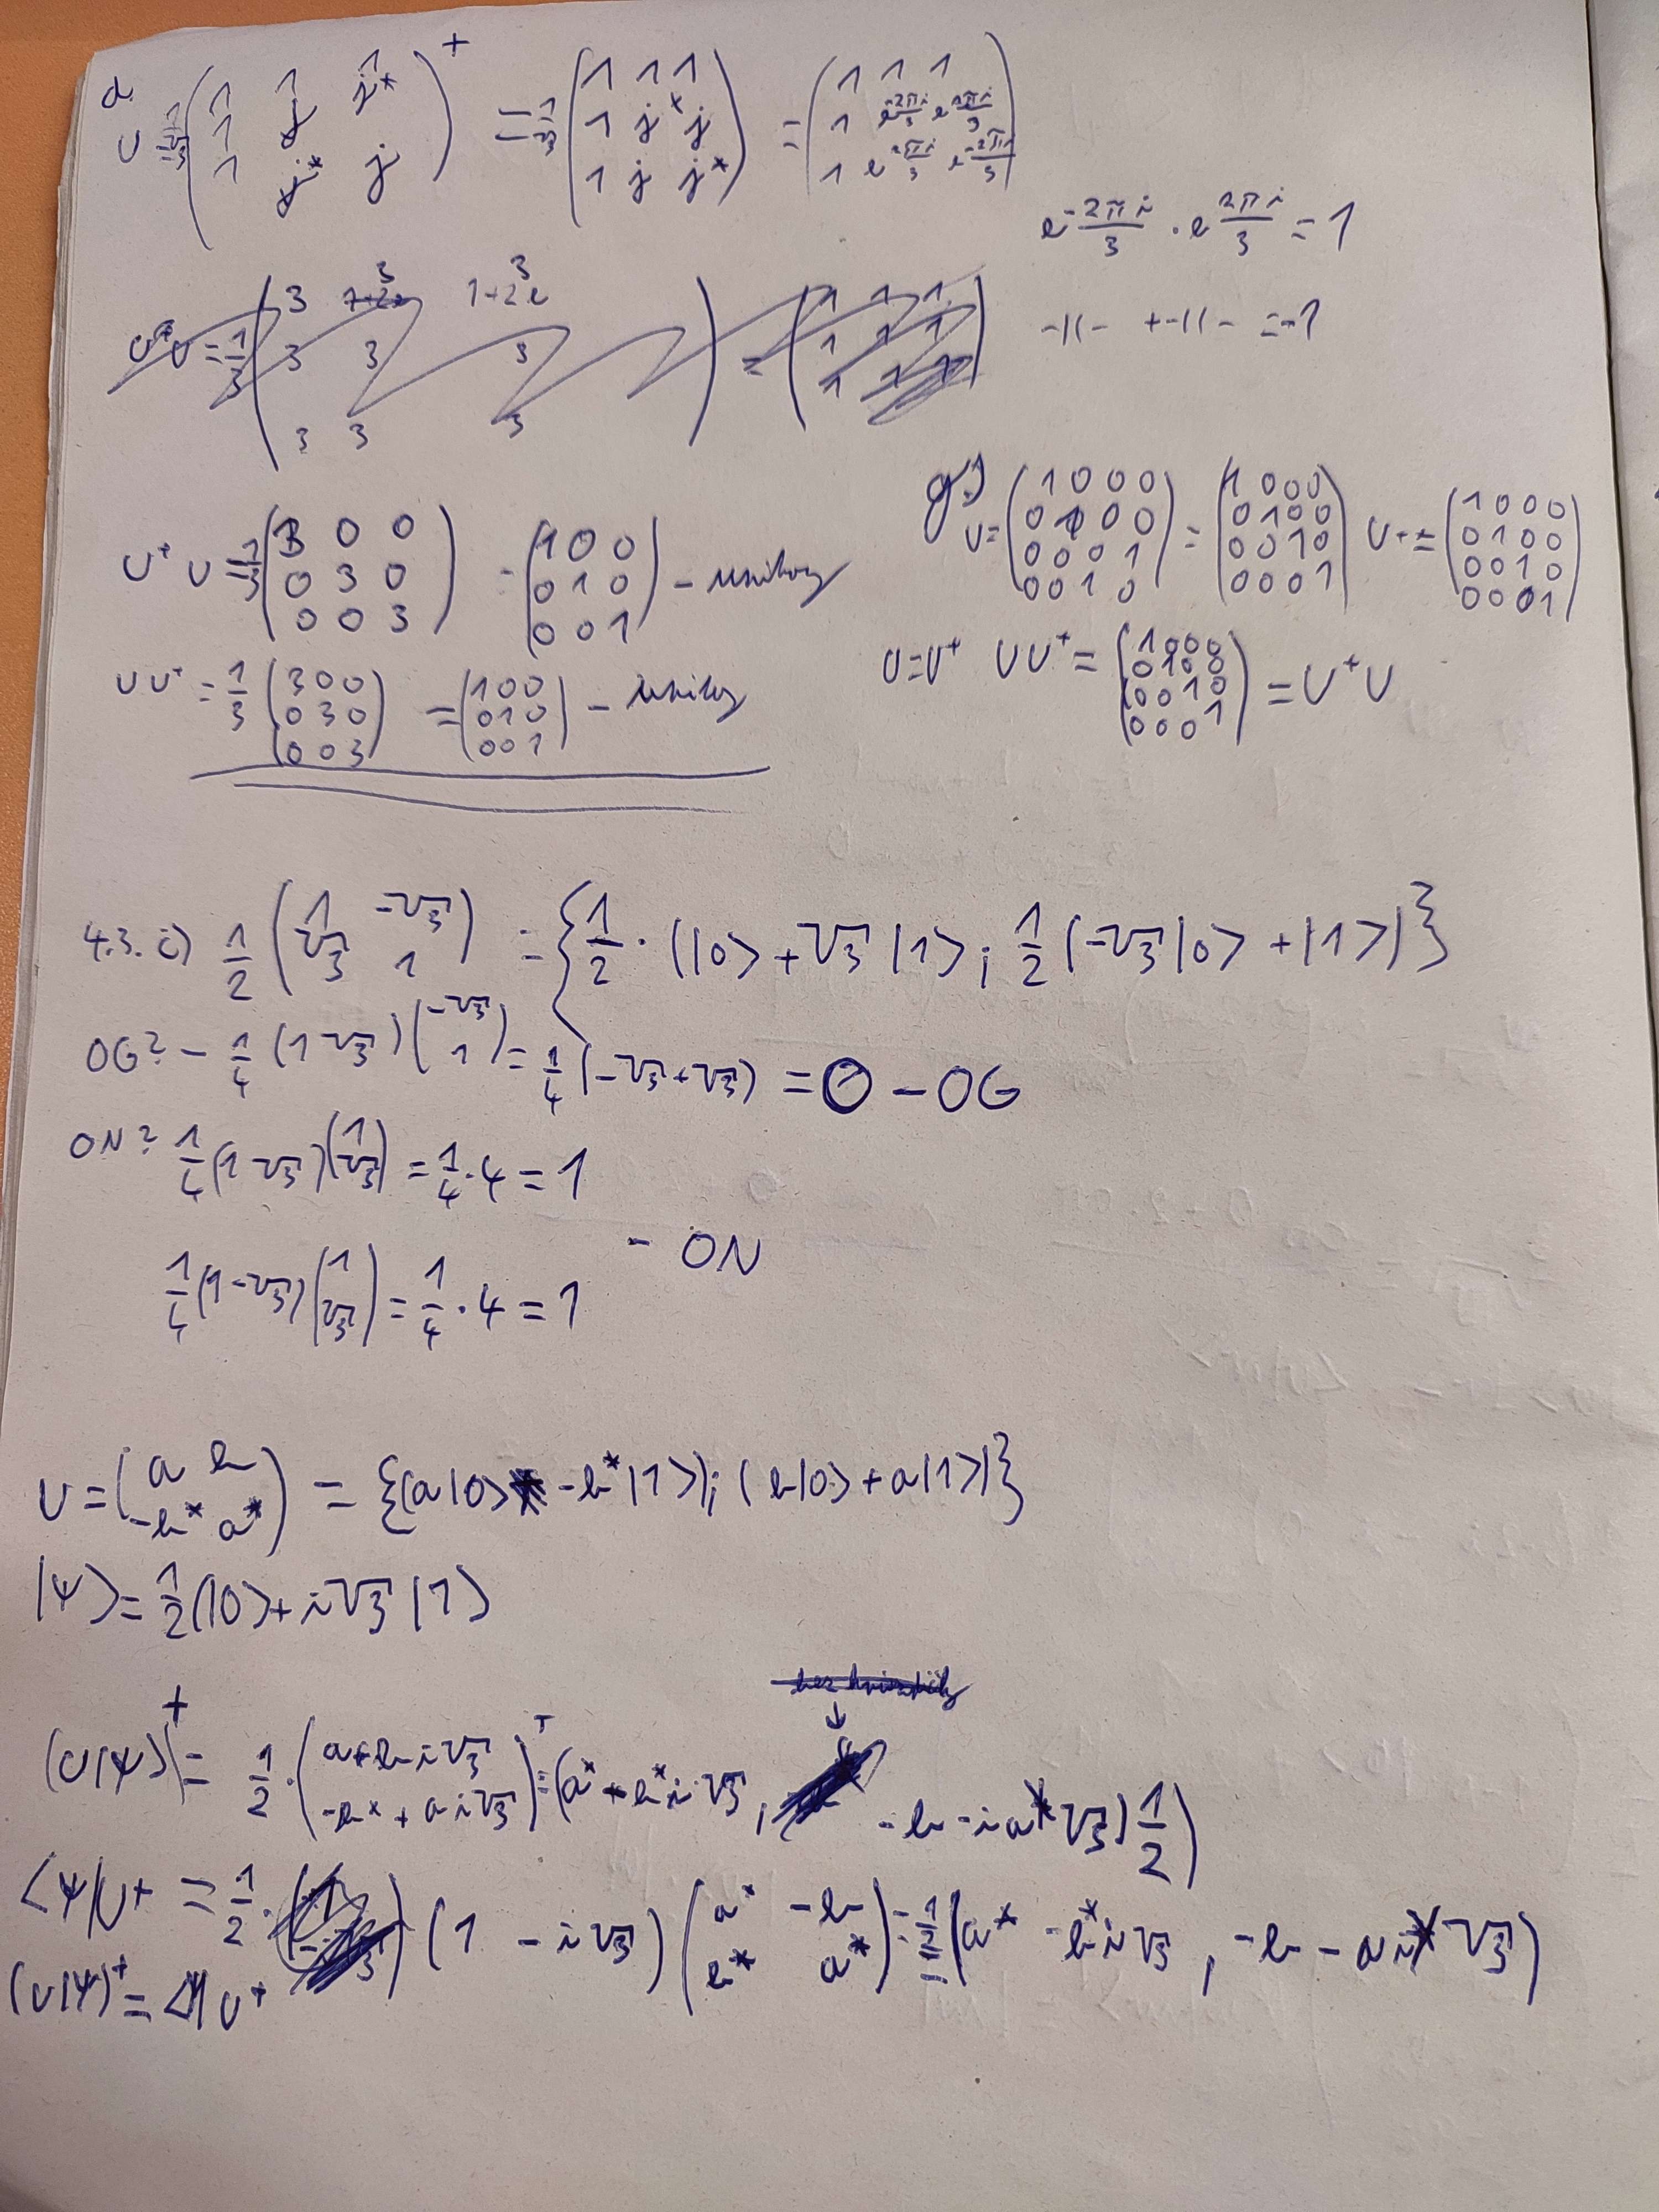 d.
U = 1/√3 (1 1 1* ; 1 j j* ; 1 j* j)⁺ = 1/√3 (1 1 1 ; 1 j* j ; 1 j j*) = (1 1 1 ; 1 e^(-2πi/3) e^(2πi/3) ; 1 e^(2πi/3) e^(-2πi/3))
e^(-2πi/3) · e^(2πi/3) = 1
-11- + -11- = -1
U⁺U = 1/3 (3 0 0 ; 0 3 0 ; 0 0 3) = (1 0 0 ; 0 1 0 ; 0 0 1) -
UU⁺ = 1/3 (3 0 0 ; 0 3 0 ; 0 0 3) = (1 0 0 ; 0 1 0 ; 0 0 1) -
g.)
U = (1 0 0 0 ; 0 1 0 0 ; 0 0 0 1 ; 0 0 1 0) = (1 0 0 0 ; 0 1 0 0 ; 0 0 1 0 ; 0 0 0 1) U⁺ = (1 0 0 0 ; 0 1 0 0 ; 0 0 1 0 ; 0 0 0 1)
U=U⁺ UU⁺ = (1 0 0 0 ; 0 1 0 0 ; 0 0 1 0 ; 0 0 0 1) = U⁺U
4.3. c) 1/2 (1 -√3 ; √3 1) = {1/2 · (|0> + √3 |1>; 1/2 (-√3|0> + |1>)}
OG? - 1/4 (1 √3)(-√3 ; 1) = 1/4 (-√3+√3) = 0 - OG
ON? 1/4 (1 √3)(1 ; √3) = 1/4 · 4 = 1
1/4 (1 -√3)(1 ; √3) = 1/4 · 4 = 1
- ON
U = (a b ; -b* a*) = {(a|0> -b*|1>); (b|0> + a|1>)}
|ψ> = 1/2 (|0> + i√3 |1>
(U|ψ>)⁺ = 1/2 · (a+bi√3 ; -b* + ai√3)ᵀ = (a* - b*i√3, -b - ia*√3) 1/2)
<ψ|U⁺ = 1/2 · (1 -i√3)(a* -b ; b* a*) = 1/2 (a* - b*i√3, -b - ai√3)
(U|ψ>)⁺ = <ψ|U⁺